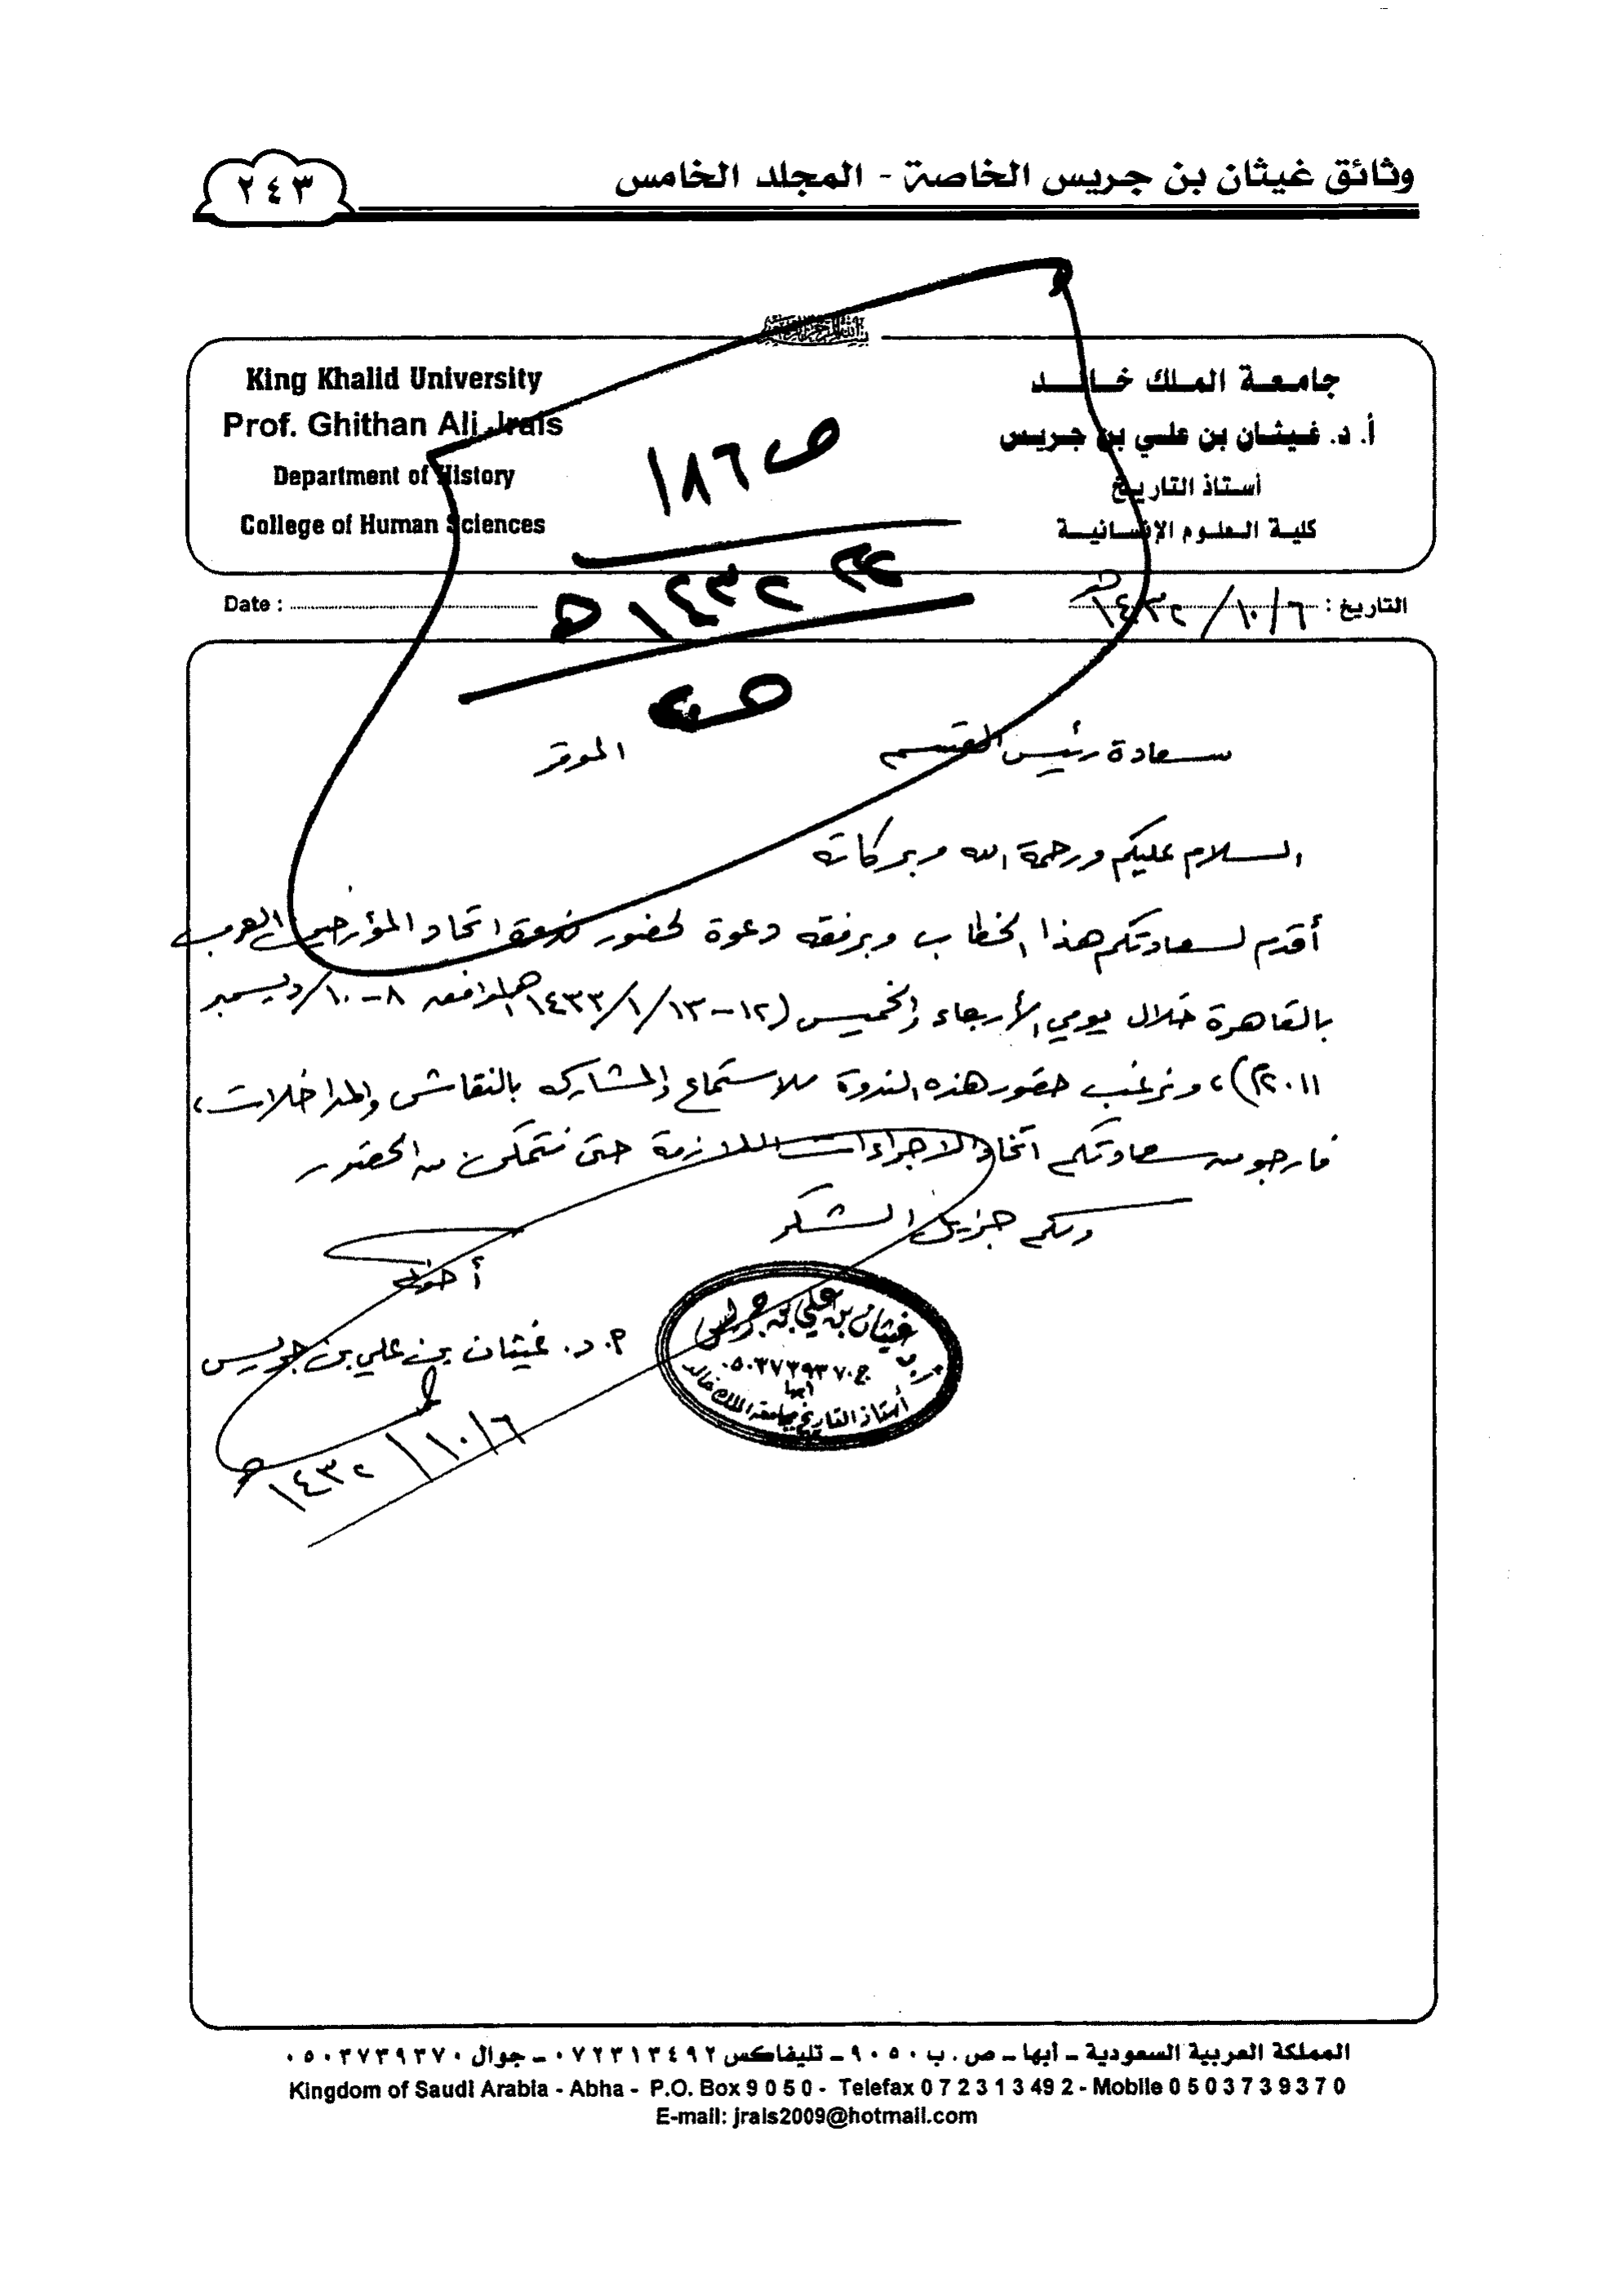 وثائق غيثان بن جريس الخاصة - المجلد الخامس
٢٤٣
جامعة الملك خالد
أ. د. غيثان بن علي بن جريس
أستاذ التاريخ
كلية العلوم الإنسانية
King Khalid University
Prof. Ghithan Ali Jrais
Department of History
College of Human Sciences
ص ١٨٦
١٤٣٢هـ
التاريخ : ٦/١٠/١٤٣٢هـ
Date :
سعادة رئيس القسم الموقر
السلام عليكم ورحمة الله وبركاته
أقدم لسعادتكم هذا الخطاب وبرفقه دعوة لحضور ندوة اتحاد المؤرخين العرب
بالقاهرة خلال يومي الأربعاء والخميس (١٢-١٣/١/١٤٣٣هـ الموافق ٨-١٠/ديسمبر
٢٠١١م)، ونرغب حضور هذه الندوة للاستماع والمشاركة بالنقاش والمداخلات،
فارجو من سعادتكم اتخاذ الاجراءات اللازمة حتى نتمكن من الحضور
ولكم جزيل الشكر
أخوكم
أ. د. غيثان بن علي بن جريس
٦/١٠/١٤٣٢هـ
غيثان بن علي بن جريس
ج ٠٥٠٣٧٣٩٣٧٠
أبها
أستاذ التاريخ بجامعة الملك خالد
المملكة العربية السعودية - أبها - ص . ب ٩٠٥٠ - تليفاكس ٠٧٢٣١٣٤٩٢ - جوال ٠٥٠٣٧٣٩٣٧٠
Kingdom of Saudi Arabia - Abha - P.O. Box 9 0 5 0 - Telefax 0 7 2 3 1 3 4 9 2 - Mobile 0 5 0 3 7 3 9 3 7 0
E-mail: jrais2009@hotmail.com